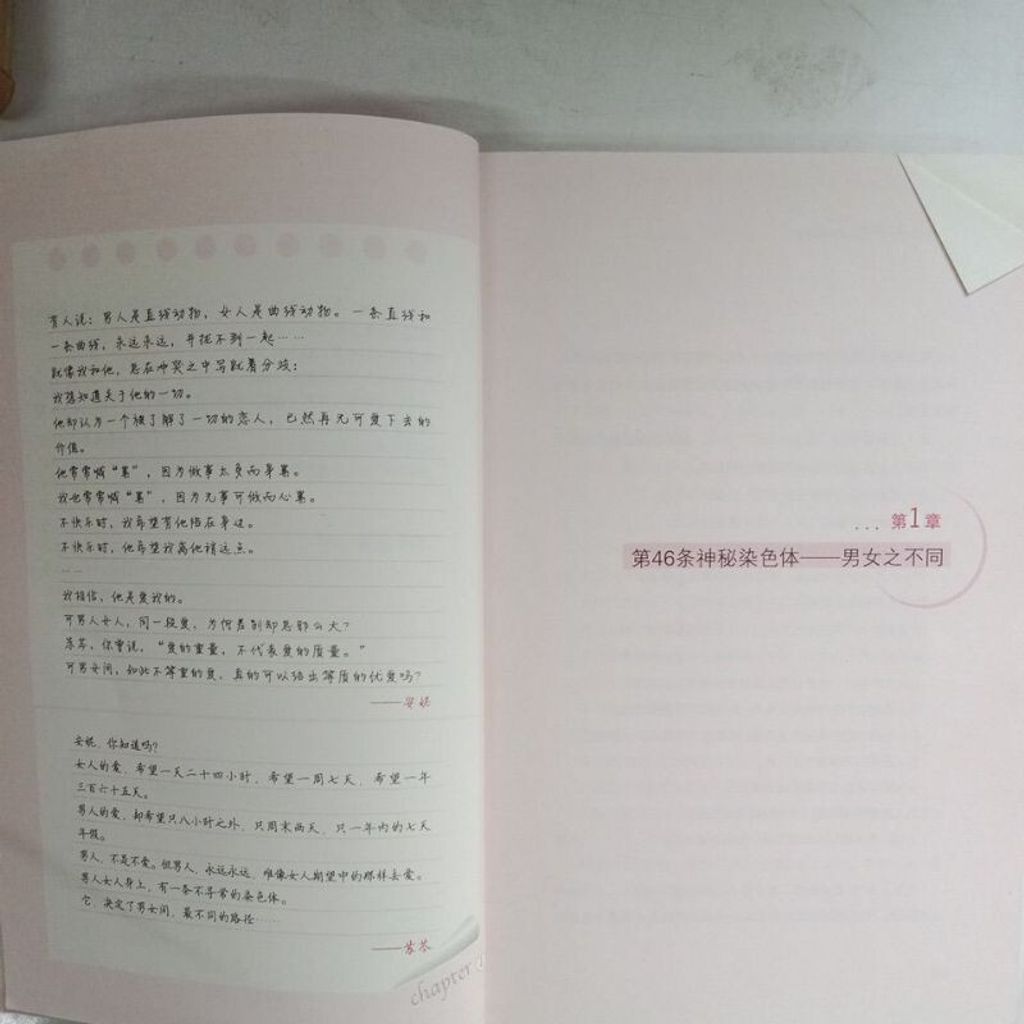 有人说：男人是直线动物，女人是曲线动物。一条直线和
一条曲线，永远永远，并拢不到一起……
就像我和他，总在冲突之中写就着分歧：
我想知道关于他的一切。
他却认为一个被了解了一切的恋人，已然再无可爱下去的
价值。
他常常喊“累”，因为做事太多而身累。
我也常常喊“累”，因为无事可做而心累。
不快乐时，我希望有他陪在身边。
不快乐时，他希望我离他稍远点。
……
我相信，他是爱我的。
可男人女人，同一段爱，为何差别却总那么大？
苏芩，你曾说，“爱的重量，不代表爱的质量。”
可男女间，如此不等重的爱，真的可以给出等质的优爱吗？
——安妮
安妮，你知道吗？
女人的爱，希望一天二十四小时，希望一周七天，希望一年
三百六十五天。
男人的爱，却希望只八小时之外，只周末两天，只一年内的七天
年假。
男人，不是不爱。但男人，永远永远，难像女人期望中的那样去爱。
男人女人身上，有一条不寻常的染色体。
它，决定了男女间，最不同的路径……
——苏芩
chapter 1
... 第1章
第46条神秘染色体——男女之不同